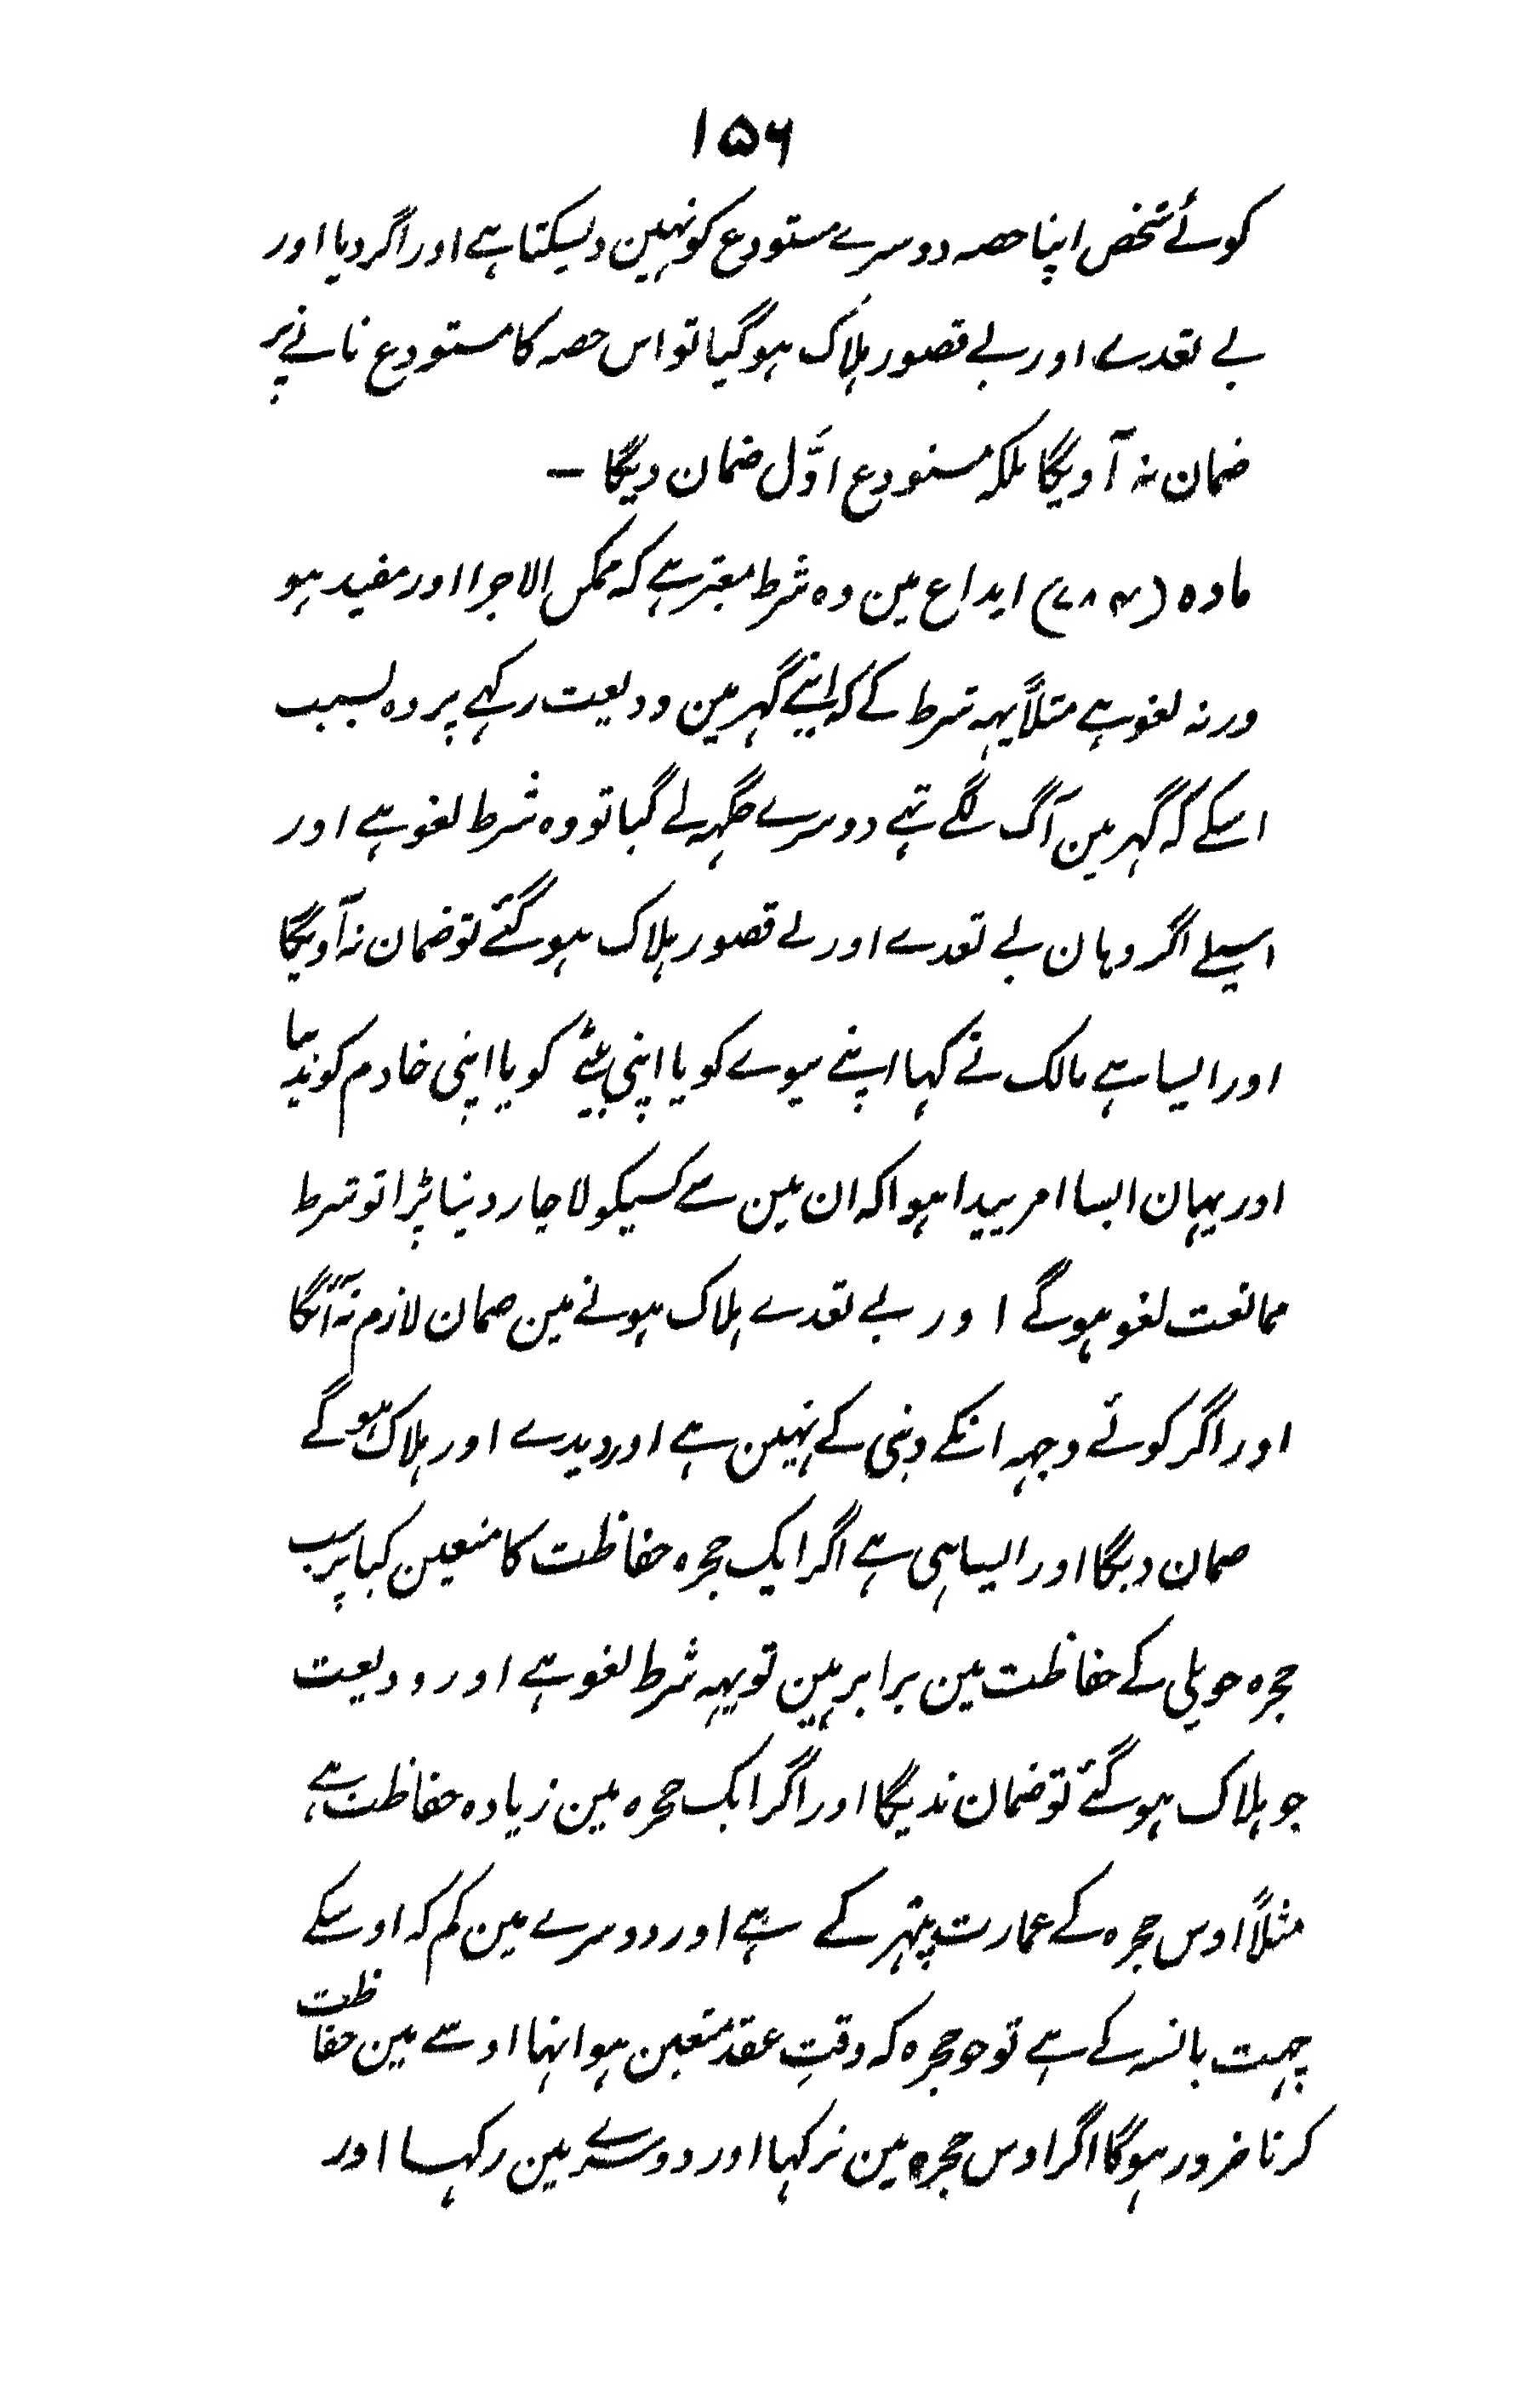 ۱۵۶
کوئے شخص اپنا حصہ دوسرے مستودع کو نہین دیسکتا ہے اور اگر دیا اور
بے تعدے اور بے قصور ہلاک ہو گیا تو اس حصہ کا مستودع ثانے پر
ضمان نہ آویگا بلکہ مستودع اوّل ضمان دیگا ۔
مادہ (۷۸۴) ایداع مین وہ شرط معتبر ہے کہ ممکن الاجرا اور مفید ہو
ورنہ لغو ہے مثلاً یہہ شرط کے کہ اپنے گہر مین ودیعت رکہے پر وہ بسبب
اسکے کہ گہر مین آگ لگے تہے دوسرے جگہہ لے گیا تو وہ شرط لغو ہے اور
اسیلے اگر وہان بے تعدے اور بے قصور ہلاک ہو گئے تو ضمان نہ آویگا
اور ایسا ہے مالک نے کہا اپنے بیوے کو یا اپنی بیٹے کو یا اپنی خادم کو ندینا
اور یہان ایسا امر پیدا ہوا کہ ان مین سے کسیکو لاچار دینا پڑا تو شرط
ممانعت لغو ہوگے اور بے تعدے ہلاک ہونے مین ضمان لازم نہ آئگا
اور اگر کوئے وجہہ انکے دینی کے نہین ہے اور دیدے اور ہلاک ہوگے
ضمان دیگا اور ایسا ہی ہے اگر ایک حجرہ حفاظت کا متعین کیا پر سب
حجرہ حویلی کے حفاظت مین برابر ہین تو یہہ شرط لغو ہے اور ودیعت
جو ہلاک ہو گئے تو ضمان ندیگا اور اگر ایک حجرہ مین زیادہ حفاظت ہے
مثلاً اوس حجرہ کے عمارت پتہر کے ہے اور دوسرے مین کم کہ اوسکے
چہت بانسہ کے ہے تو جو حجرہ کہ وقتِ عقد متعین ہوا تہا اوسے مین حفاظت
کرنا ضرور ہوگا اگر اوس حجرہ مین نرکہا اور دوسرے مین رکہا اور